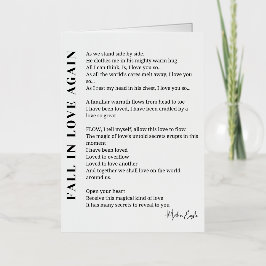 FALL IN LOVE AGAIN
As we stand side by side,
He clothes me in his mighty warm hug
All I can think, is, I love you so...
As all the world's cares melt away, I love you
so...
As I rest my head in his chest, I love you so...
A familiar warmth flows from head to toe
I have been loved, I have been cradled by a
love so great
FLOW, I tell myself, allow this love to flow
The magic of love's untold secrets erupts in this
moment
I have been loved
Loved to overflow
Loved to love another
And together we shall love on the world
around us.
Open your heart
Receive this magical kind of love
It has many secrets to reveal to you.